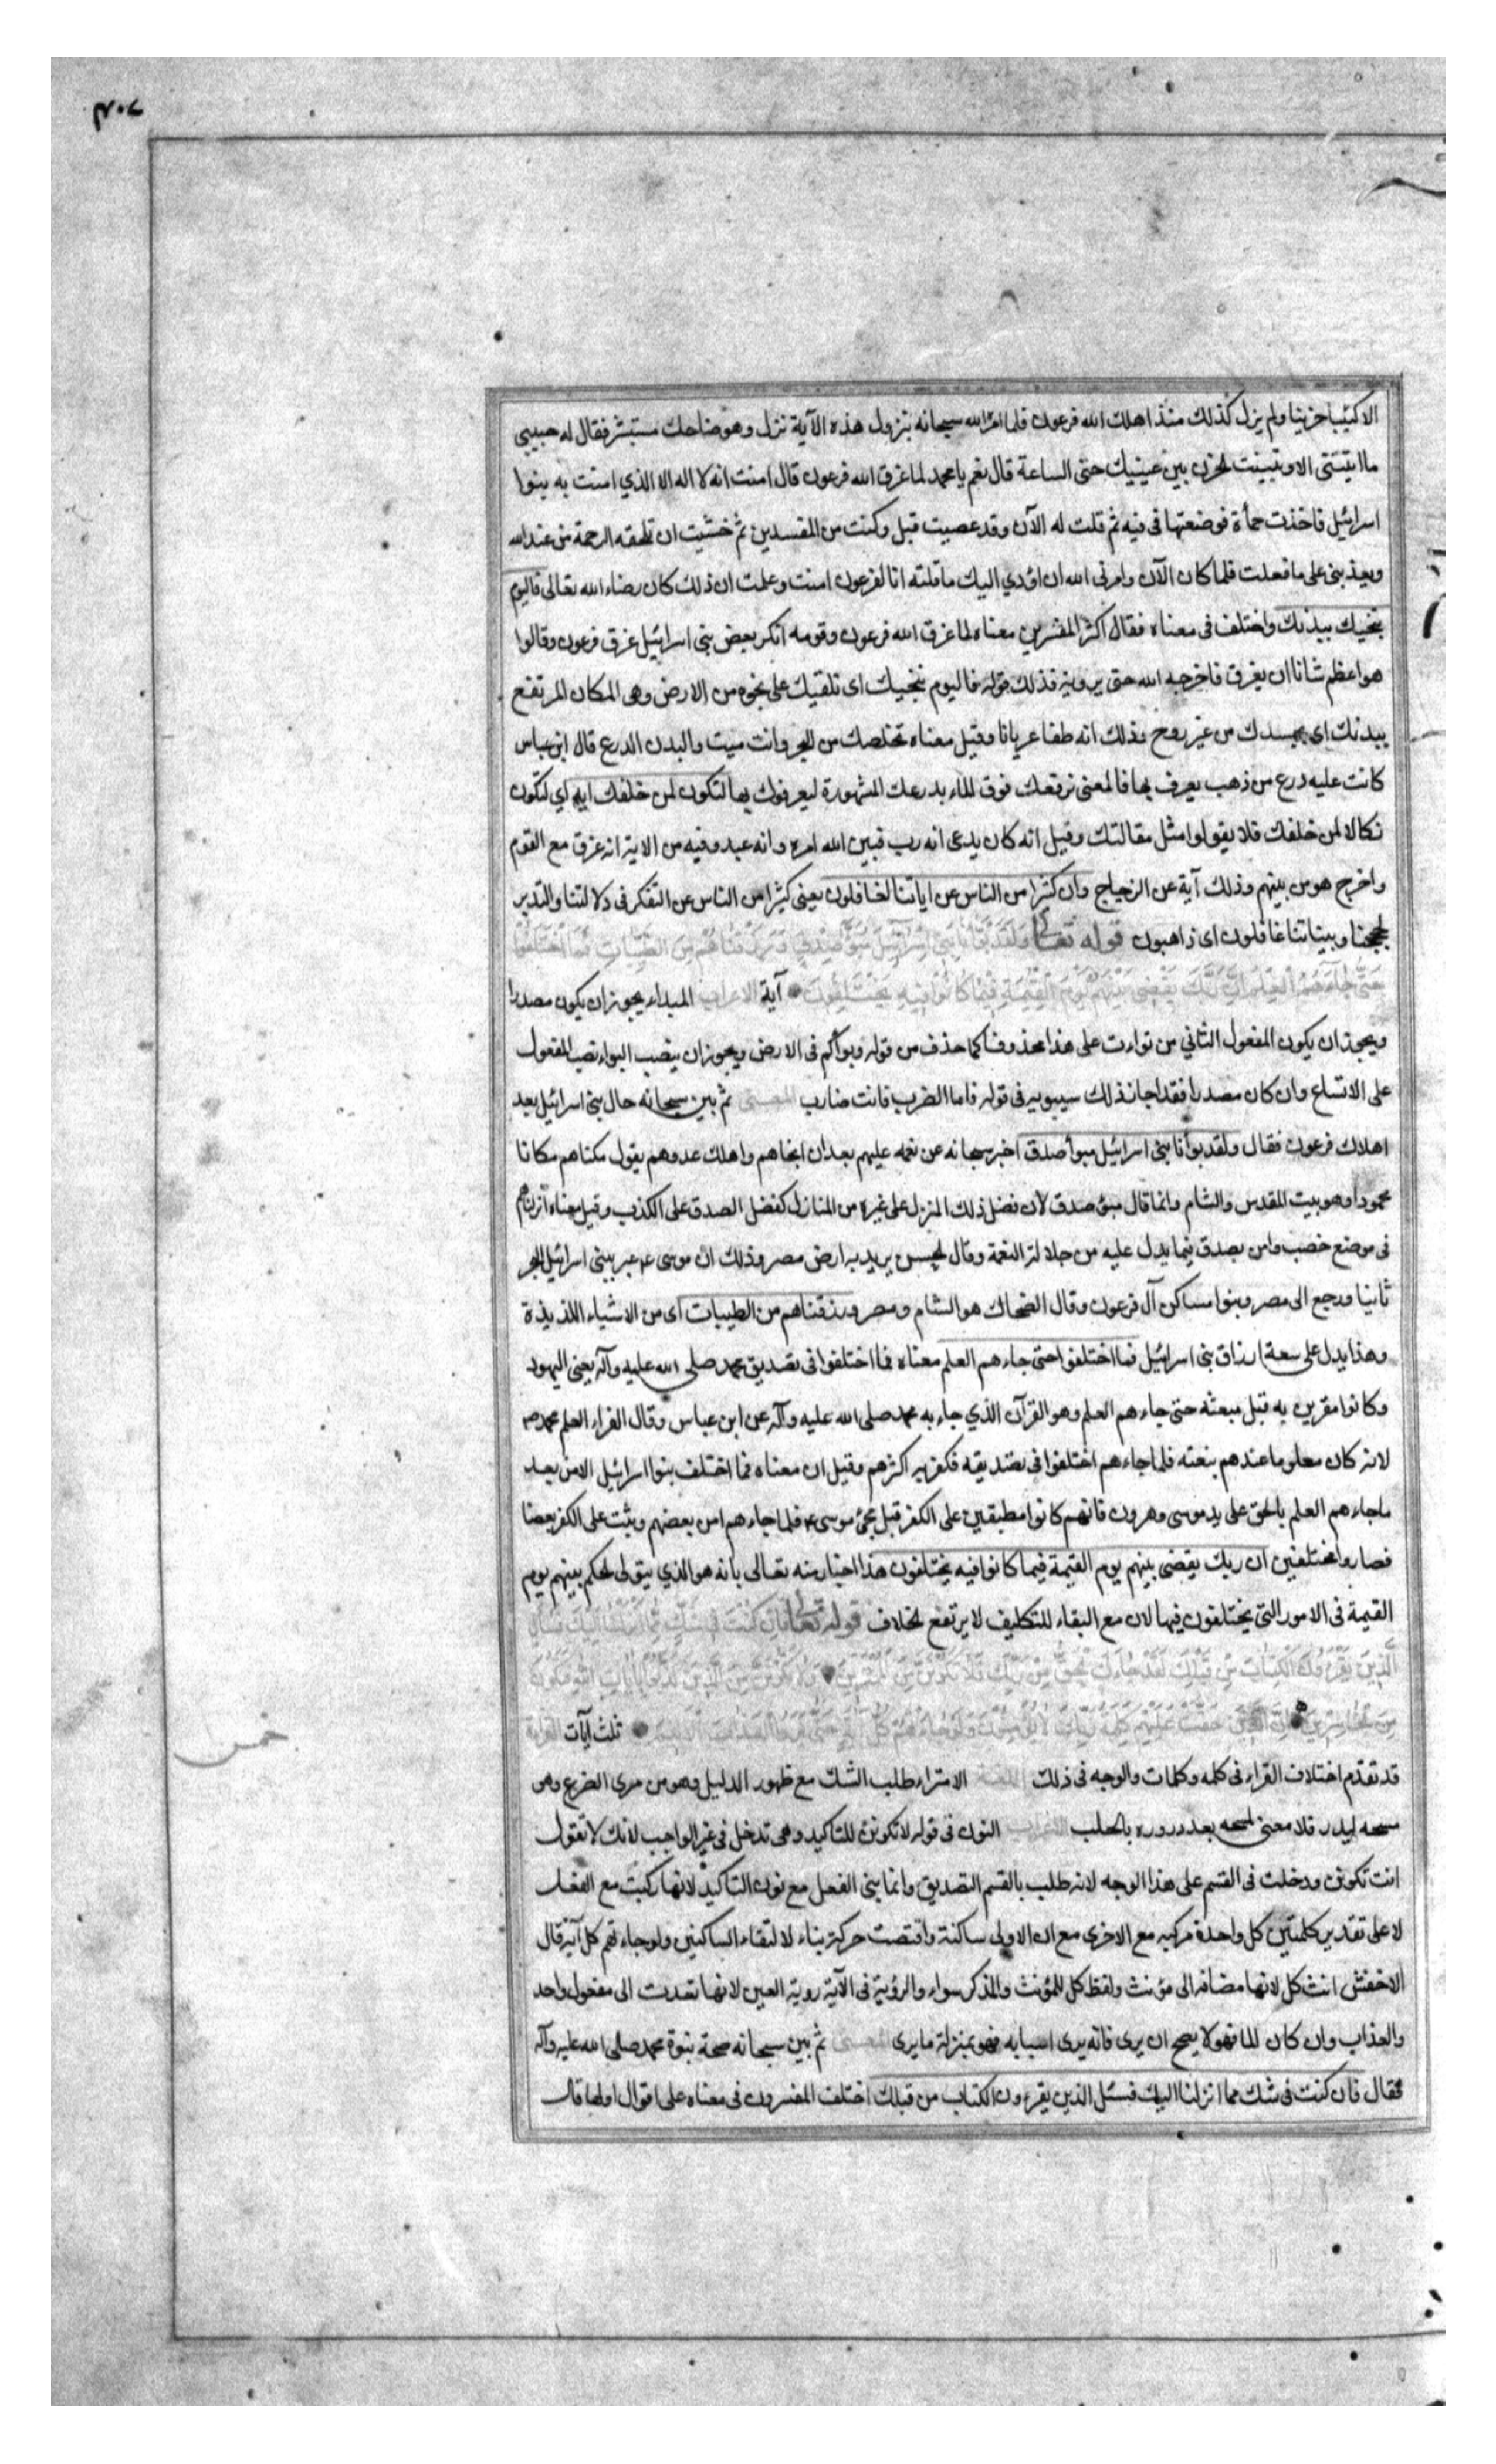 الا كئيبا حزينا ولم يزل كذلك منذ اهلك الله فرعون فلما امر الله سبحانه بنزول هذه الآية نزل وهو ضاحك مستبشر فقال له حبيبي
ما اتيتني الا وتبينت الحزن بين عينيك حتى الساعة قال نعم يا محمد لما غرق الله فرعون قال امنت انه لا اله الا الذي امنت به بنوا
اسرائيل فاخذت حمأة فوضعتها في فيه ثم قلت له الآن وقد عصيت قبل وكنت من المفسدين ثم خشيت ان تلحقه الرحمة من عند الله
ويعذبني على ما فعلت فلما كان الآن وامرني الله ان اؤدي اليك ما قلته انا لفرعون امنت وعلمت ان ذلك كان رضاء الله تعالى فاليوم
ننجيك ببدنك واختلف في معناه فقال اكثر المفسرين معناه لما غرق الله فرعون وقومه انكر بعض بني اسرائيل غرق فرعون وقالوا
هو اعظم شانا ان يغرق فاخرجه الله حتى يروه فذلك قوله فاليوم ننجيك اى نلقيك على نجوة من الارض وهي المكان المرتفع
ببدنك اى بجسدك من غير روح وذلك انه طفا عريانا وقيل معناه نخلصك من البحر وانت ميت والبدن الدرع قال ابن عباس
كانت عليه درع من ذهب يعرف بها فالمعنى نرفعك فوق الماء بدرعك المشهورة ليعرفوك بها لتكون لمن خلفك اية اي لتكون
نكالا لمن خلفك فلا يقولوا مثل مقالتك وقيل انه كان يدعى انه رب فبين الله امره وانه عبد وفيه من الاية انه غرق مع القوم
واخرج هو من بينهم وذلك آية عن الزجاج وان كثيرا من الناس عن اياتنا لغافلون يعني كثيرا من الناس عن التفكر في دلالتنا والتدبر
لحججنا وبيناتنا غافلون اى ذاهبون قوله تعالى ولقد بوأنا بني اسرآئيل مبوأ صدق ورزقناهم من الطيبات فما اختلفوا
حتى جاءهم العلم ان ربك يقضى بينهم يوم القيمة فيما كانوا فيه يختلفون آية الاعراب المبواء يجوز ان يكون مصدرا
ويجوز ان يكون المفعول الثاني من بوات على هذا محذوفا كما حذف من قوله وبوأكم في الارض ويجوز ان ينصب المبواء نصب المفعول
على الاتساع وان كان مصدرا فقد اجاز ذلك سيبويه في قوله فاما الضرب فانت ضارب المعنى ثم بين سبحانه حال بني اسرائيل بعد
اهلاك فرعون فقال ولقد بوأنا بني اسرائيل مبوأ صدق اخبر سبحانه عن نعمه عليهم بعد ان انجاهم واهلك عدوهم يقول مكناهم مكانا
محمودا وهو بيت المقدس والشام وانما قال مبوء صدق لان فضل ذلك المنزل على غيره من المنازل كفضل الصدق على الكذب وقيل معناه انزلناهم
في موضع خصب وامن يصدق فيما يدل عليه من جلالة النعمة وقال الحسن يريد به ارض مصر وذلك ان موسى ع عبر ببني اسرائيل البحر
ثانيا ورجع الى مصر وبنوا مساكن آل فرعون وقال الضحاك هو الشام ومصر ورزقناهم من الطيبات اى من الاشياء اللذيذة
وهذا يدل على سعة ارزاق بني اسرائيل فما اختلفوا حتى جاءهم العلم معناه فما اختلفوا في تصديق محمد صلى الله عليه وآله يعني اليهود
وكانوا مقرين به قبل مبعثه حتى جاءهم العلم وهو القرآن الذي جاء به محمد صلى الله عليه وآله عن ابن عباس وقال الفراء العلم محمد ص
لانه كان معلوما عندهم بنعته فلما جاءهم اختلفوا في تصديقه فكفر به اكثرهم وقيل ان معناه فما اختلف بنوا اسرائيل الا من بعد
ما جاءهم العلم بالحق على يد موسى وهرون فانهم كانوا مطبقين على الكفر قبل مجئ موسى ع فلما جاءهم امن بعضهم وثبت على الكفر بعضا
فصاروا مختلفين ان ربك يقضى بينهم يوم القيمة فيما كانوا فيه يختلفون هذا اخبار منه تعالى بانه هو الذي يتولى الحكم بينهم يوم
القيمة في الامور التي يختلفون فيها لان مع البقاء للتكليف لا يرتفع الخلاف قوله تعالى فان كنت في شك مما انزلنا اليك فسئل
الذين يقرءون الكتاب من قبلك لقد جاءك الحق من ربك فلا تكونن من الممترين ولا تكونن من الذين كذبوا بايات الله فتكون
من الخاسرين ان الذين حقت عليهم كلمة ربك لا يؤمنون ولو جاءتهم كل آية حتى يروا العذاب الاليم ثلث آيات القراءة
قد تقدم اختلاف القراء في كلمه وكلمات والوجه في ذلك اللغة الامتراء طلب الشك مع ظهور الدليل وهو من مري الضرع وهو
مسحه ليدر فلا معنى لمسحه بعد دروره بالحلب الاعراب النون في قوله لا تكونن للتاكيد وهي تدخل في غير الواجب لانك لا تقول
انت تكونن ودخلت في القسم على هذا الوجه لانه طلب بالقسم التصديق وانما بني الفعل مع نون التاكيد لانها ركبت مع الفعل
لا على تقدير كلمتين كل واحدة مركبه مع الاخرى مع ان الاولى ساكنة واقتضت حركة بناء لالتقاء الساكنين ولو جاءتهم كل آية قال
الاخفش انث كل لانها مضافه الى مؤنث ولفظ كل للمؤنث والمذكر سواء والرؤية في الآية روية العين لانها تعدت الى مفعول واحد
والعذاب وان كان الما فهو لا يصح ان يرى فانه يرى اسبابه فهو بمنزلة ما يرى المعنى ثم بين سبحانه صحة نبوة محمد صلى الله عليه وآله
فقال فان كنت في شك مما انزلنا اليك فسئل الذين يقرءون الكتاب من قبلك اختلف المفسرون في معناه على اقوال اولها قال